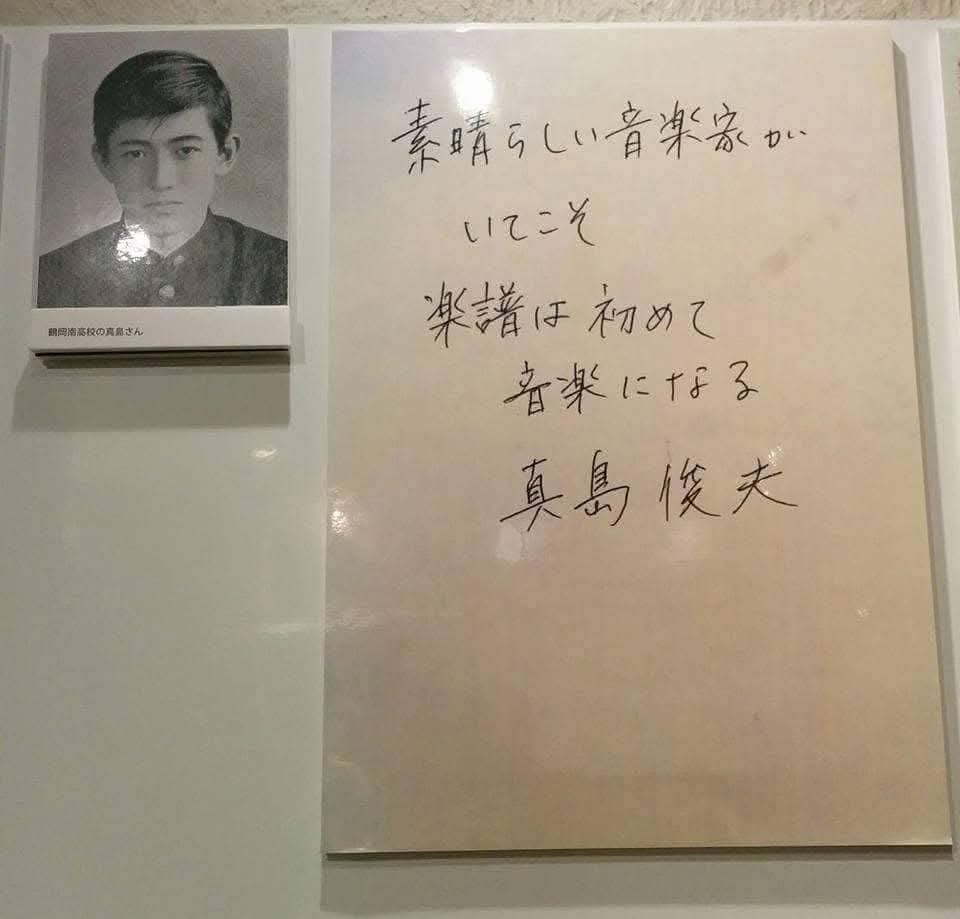 鶴岡南高校の真島さん
素晴らしい音楽家が
いてこそ
楽譜は初めて
音楽になる
真島俊夫